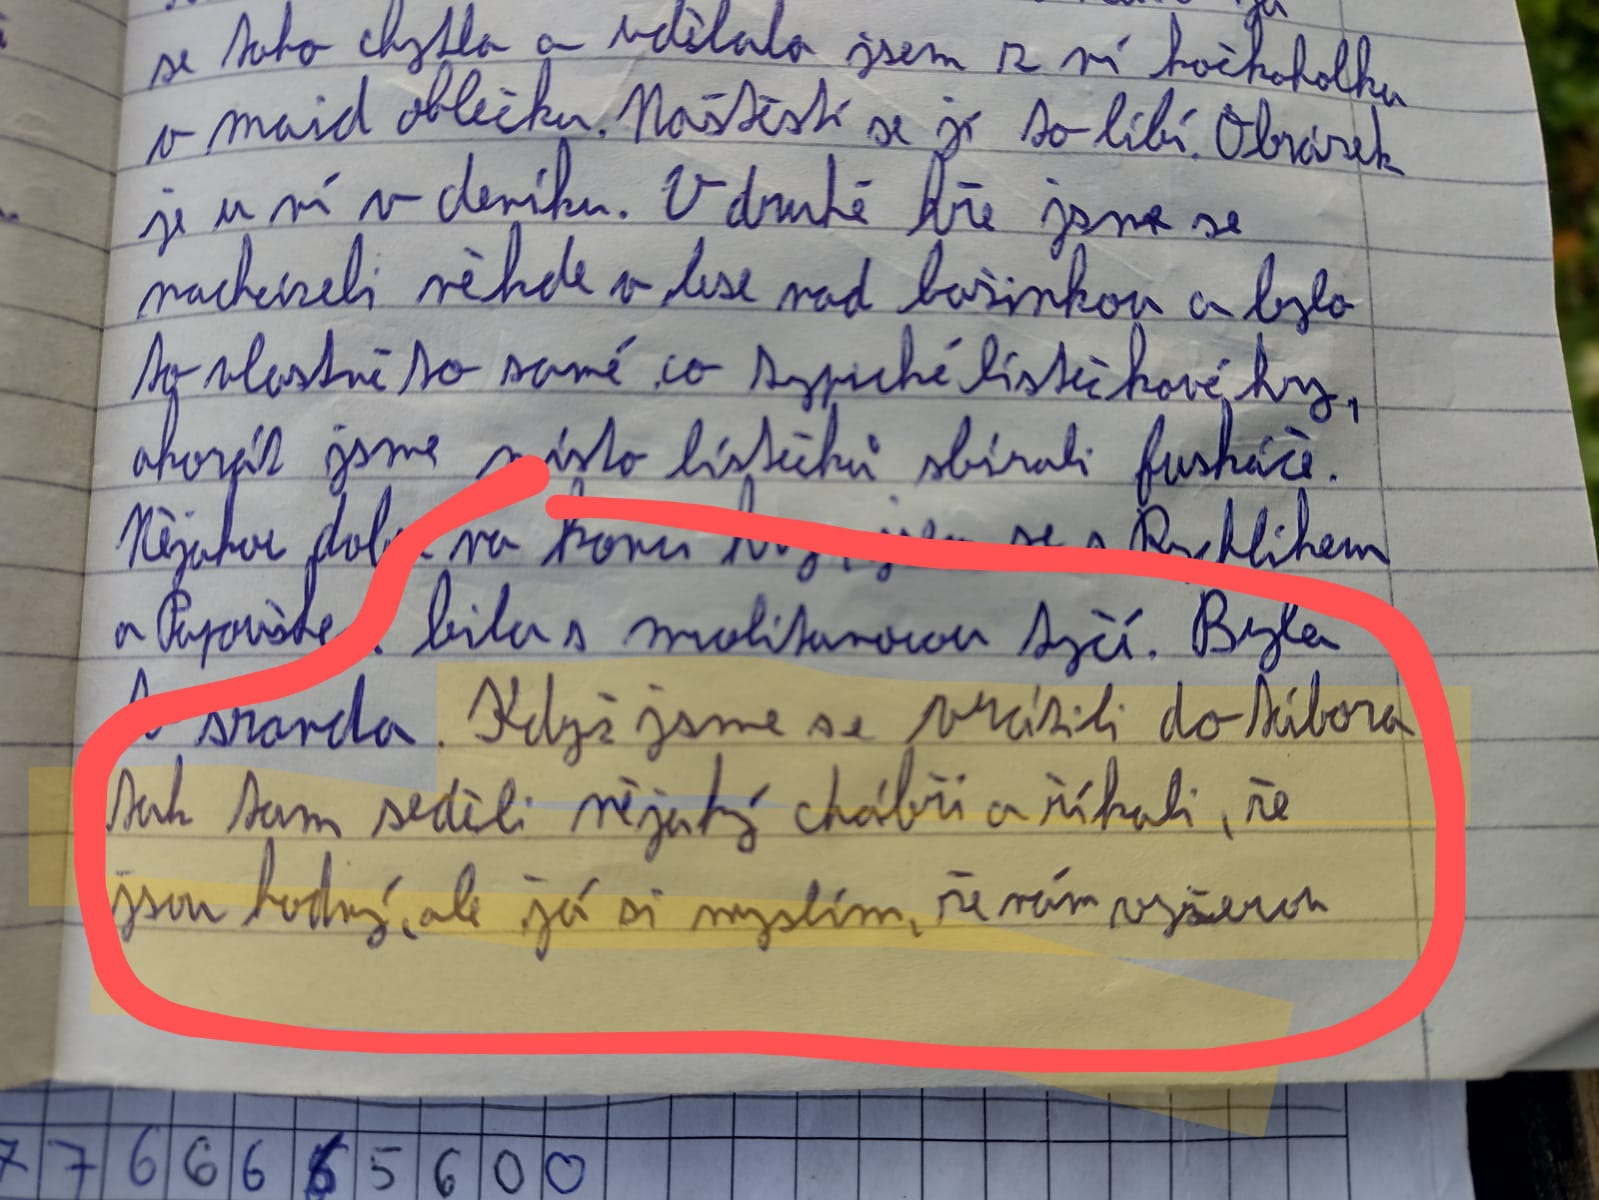 se toho chytla a udělala jsem z ní kočkoholku
v maid oblečku. Naštěstí se jí to líbí. Obrázek
je u ní v deníku. V druhé hře jsme se
nacházeli někde v lese nad bažinkou a bylo
to vlastně to samé co typické lístečkové hry,
akorát jsme místo lístečků sbírali fusкáče.
Nějakou dobu na konci hry, jsem se s Rychlíkem
a bila s molitanovou tyčí. Byla
to sranda. Když jsme se vrátili do tábora
tak tam seděli nějaký chábři a říkali, že
jsou hodný, ale já si myslím, že nám vyžerou
7 7 6 6 6 6 5 6 0 0